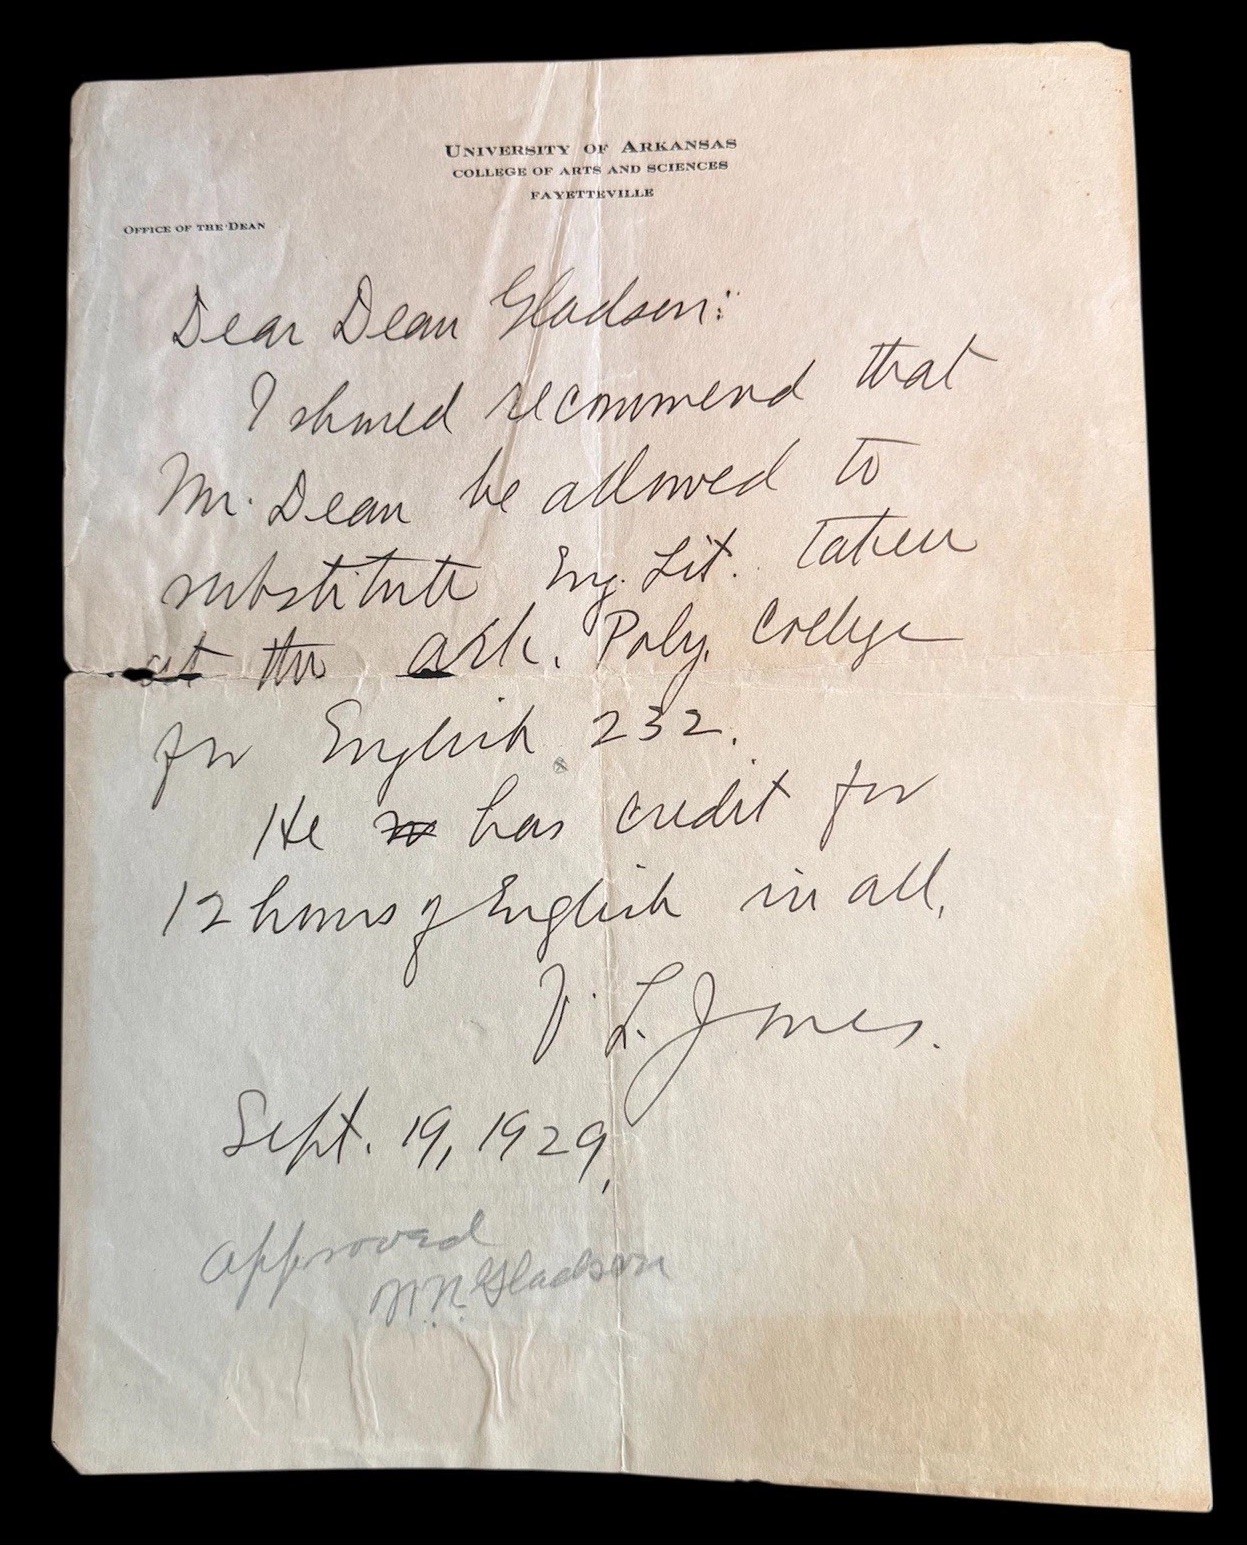 UNIVERSITY OF ARKANSAS
COLLEGE OF ARTS AND SCIENCES
FAYETTEVILLE
OFFICE OF THE DEAN
Dear Dean Gladson:
I should recommend that
Mr. Dean be allowed to
substitute Eng. Lit. taken
at the Ark. Poly. College
for English 232.
He has credit for
12 hours of English in all.
V. L. Jones.
Sept. 19, 1929.
Approved
W.N. Gladson